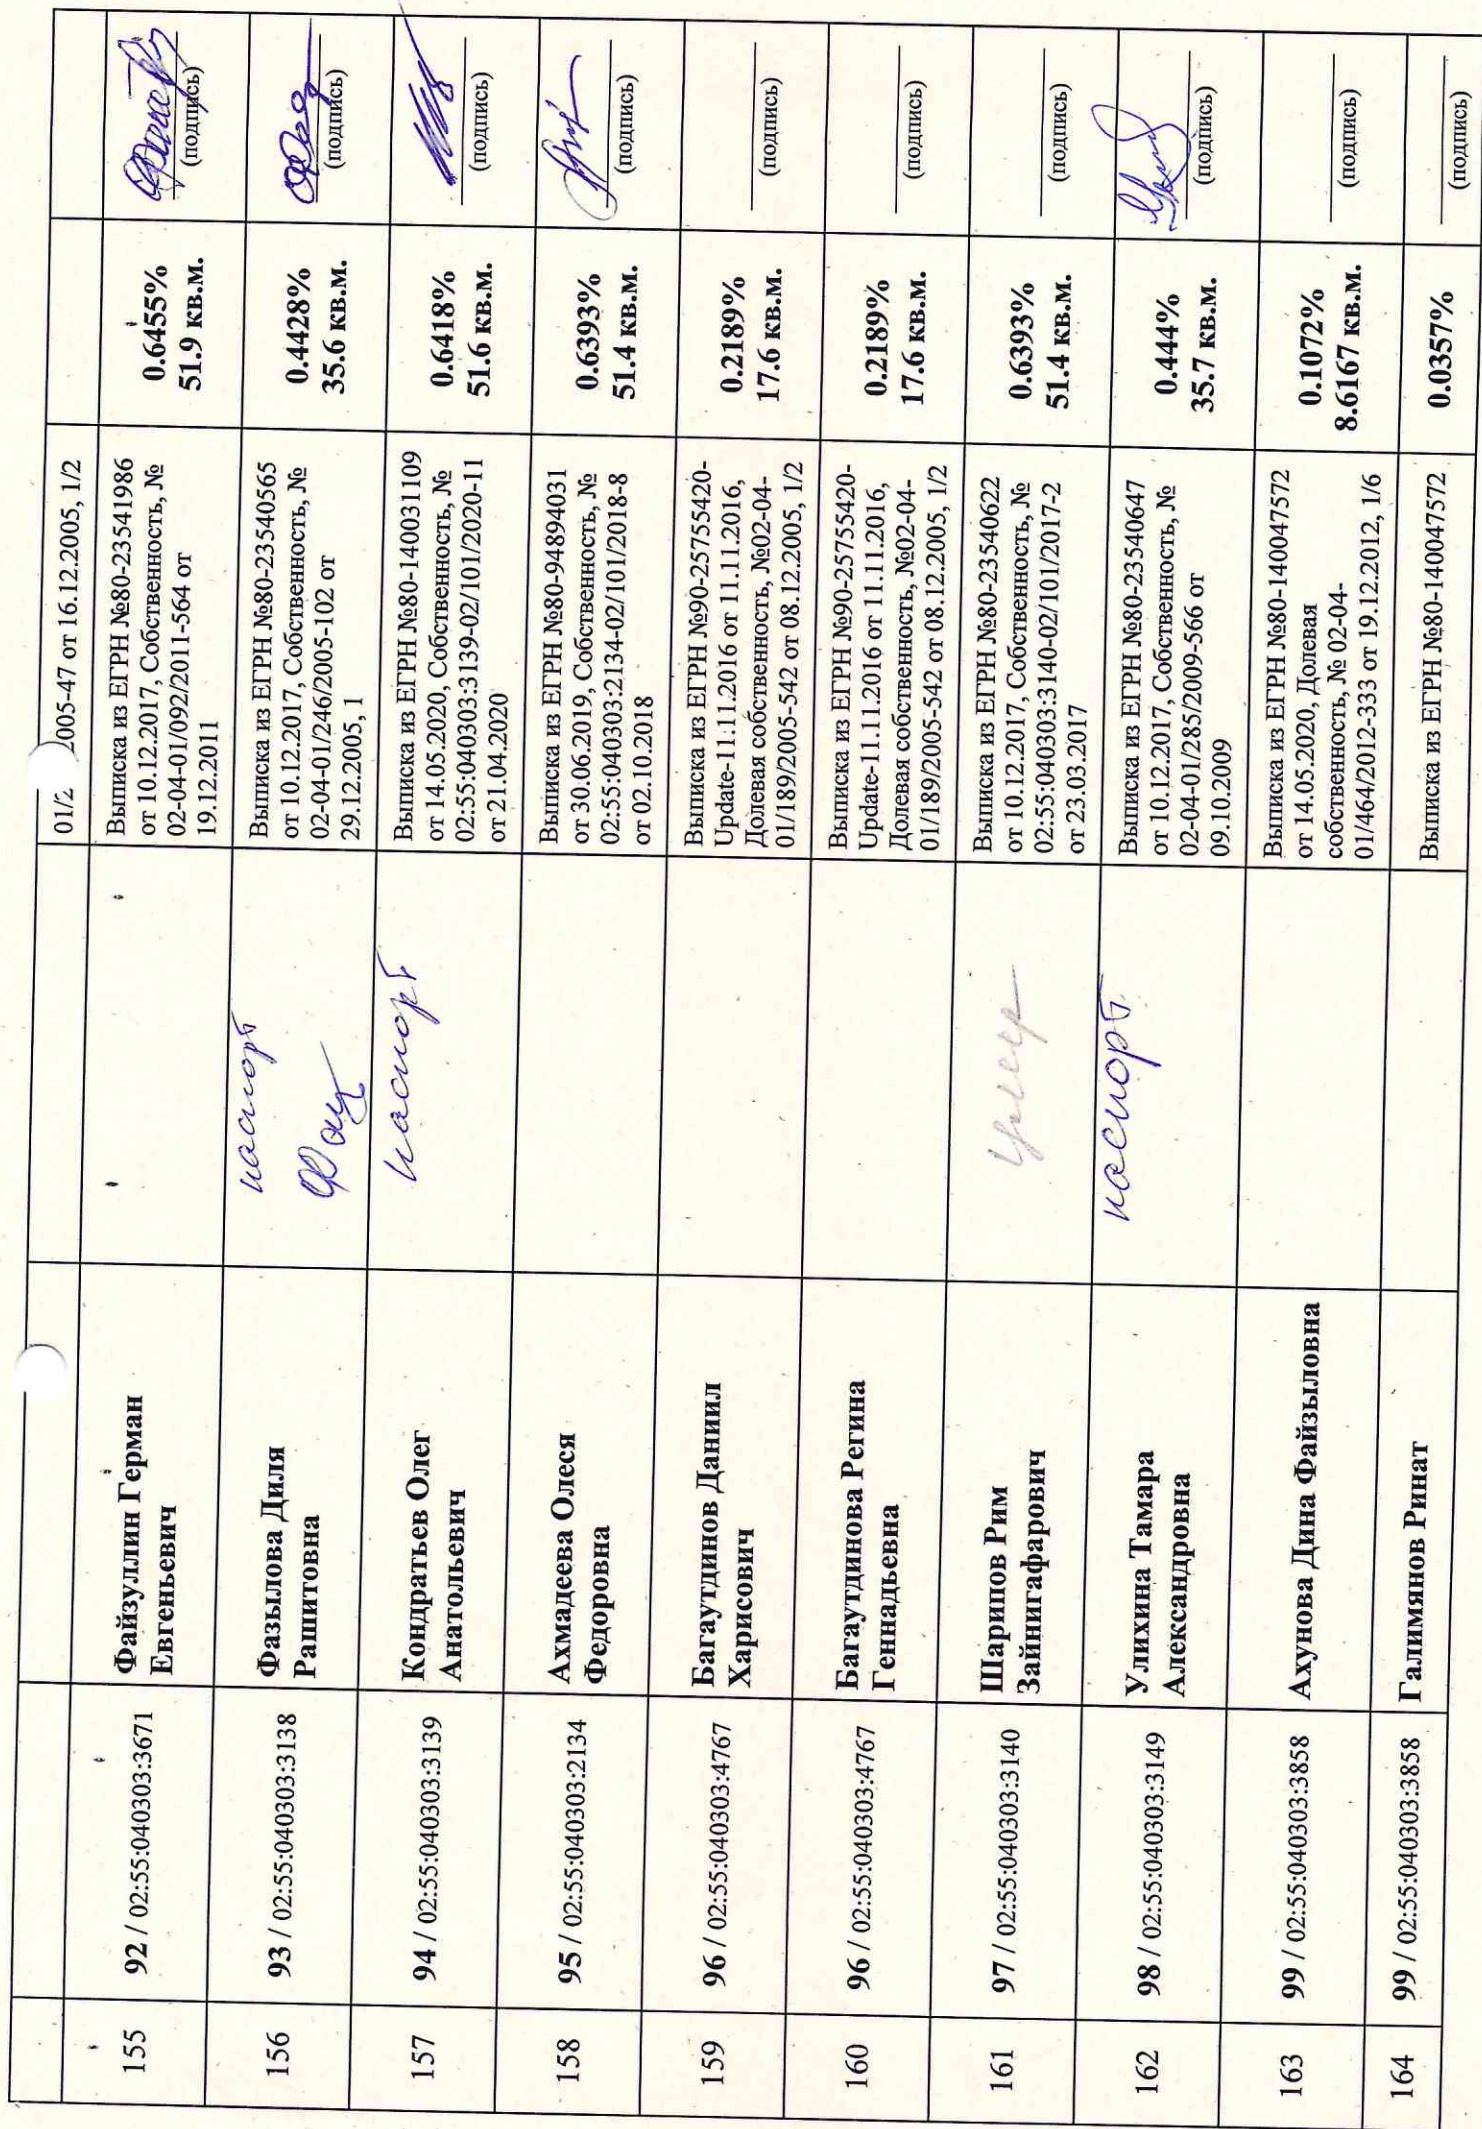 01/2 005-47 от 16.12.2005, 1/2
155
92 / 02:55:040303:3671
Файзуллин Герман
Евгеньевич
Выписка из ЕГРН №80-23541986
от 10.12.2017, Собственность, №
02-04-01/092/2011-564 от
19.12.2011
0.6455%
51.9 кв.м.
(подпись)
156
93 / 02:55:040303:3138
Фазылова Диля
Рашитовна
паспорт
Выписка из ЕГРН №80-23540565
от 10.12.2017, Собственность, №
02-04-01/246/2005-102 от
29.12.2005, 1
0.4428%
35.6 кв.м.
(подпись)
157
94 / 02:55:040303:3139
Кондратьев Олег
Анатольевич
паспорт
Выписка из ЕГРН №80-140031109
от 14.05.2020, Собственность, №
02:55:040303:3139-02/101/2020-11
от 21.04.2020
0.6418%
51.6 кв.м.
(подпись)
158
95 / 02:55:040303:2134
Ахмадеева Олеся
Федоровна
Выписка из ЕГРН №80-94894031
от 30.06.2019, Собственность, №
02:55:040303:2134-02/101/2018-8
от 02.10.2018
0.6393%
51.4 кв.м.
(подпись)
159
96 / 02:55:040303:4767
Багаутдинов Даниил
Харисович
Выписка из ЕГРН №90-25755420-
Update-11.11.2016 от 11.11.2016,
Долевая собственность, №02-04-
01/189/2005-542 от 08.12.2005, 1/2
0.2189%
17.6 кв.м.
(подпись)
160
96 / 02:55:040303:4767
Багаутдинова Регина
Геннадьевна
Выписка из ЕГРН №90-25755420-
Update-11.11.2016 от 11.11.2016,
Долевая собственность, №02-04-
01/189/2005-542 от 08.12.2005, 1/2
0.2189%
17.6 кв.м.
(подпись)
161
97 / 02:55:040303:3140
Шарипов Рим
Зайнигафарович
Выписка из ЕГРН №80-23540622
от 10.12.2017, Собственность, №
02:55:040303:3140-02/101/2017-2
от 23.03.2017
0.6393%
51.4 кв.м.
(подпись)
162
98 / 02:55:040303:3149
Улихина Тамара
Александровна
паспорт
Выписка из ЕГРН №80-23540647
от 10.12.2017, Собственность, №
02-04-01/285/2009-566 от
09.10.2009
0.444%
35.7 кв.м.
(подпись)
163
99 / 02:55:040303:3858
Ахунова Дина Файзыловна
Выписка из ЕГРН №80-140047572
от 14.05.2020, Долевая
собственность, № 02-04-
01/464/2012-333 от 19.12.2012, 1/6
0.1072%
8.6167 кв.м.
(подпись)
164
99 / 02:55:040303:3858
Галимянов Ринат
Выписка из ЕГРН №80-140047572
0.0357%
(подпись)